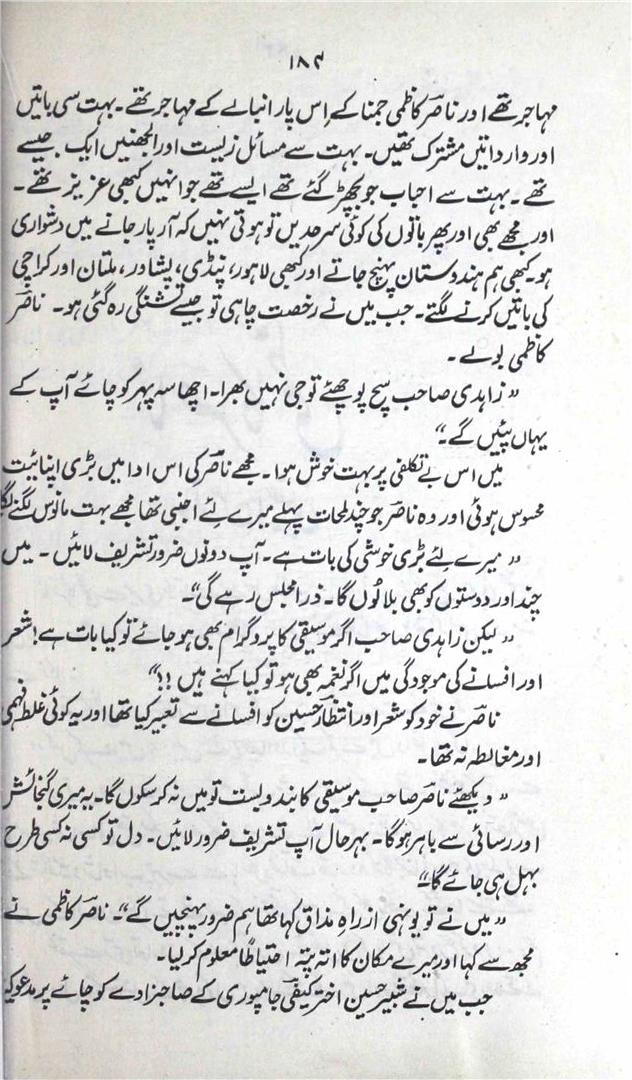 ۱۸۴
مہاجر تھے اور ناصر کاظمی جمنا کے اِس پار انبالے کے مہاجر تھے۔ بہت سی باتیں
اور وارداتیں مشترک تھیں۔ بہت سے مسائل زیست اور الجھنیں ایک جیسے
تھے۔ بہت سے احباب جو بچھڑ گئے تھے ایسے تھے جو انہیں کبھی عزیز تھے۔
اور مجھے بھی اور پھر باتوں کی کوئی سرحدیں تو ہوتی نہیں کہ آر پار جانے میں دشواری
ہو۔ کبھی ہم ہندوستان پہنچ جاتے اور کبھی لاہور، پنڈی، پشاور، ملتان اور کراچی
کی باتیں کرنے لگتے۔ جب میں نے رخصت چاہی تو جیسے تشنگی رہ گئی ہو۔ ناصر
کاظمی بولے۔
”زاہدی صاحب سچ پوچھئے تو جی نہیں بھرا۔ اچھا سہ پہر کو چائے آپ کے
یہاں پئیں گے۔“
میں اس بے تکلفی پر بہت خوش ہوا۔ مجھے ناصر کی اس ادا میں بڑی اپنائیت
محسوس ہوئی اور وہ ناصر جو چند لمحات پہلے میرے لئے اجنبی تھا مجھے بہت مانوس لگنے لگا
”میرے لئے بڑی خوشی کی بات ہے۔ آپ دونوں ضرور تشریف لائیں۔ میں
چند اور دوستوں کو بھی بلا لُوں گا۔ ذرا مجلس رہے گی“۔
”لیکن زاہدی صاحب اگر موسیقی کا پروگرام بھی ہو جائے تو کیا بات ہے! شعر
اور افسانے کی موجودگی میں اگر نغمہ بھی ہو تو کیا کہنے ہیں!!“
ناصر نے خود کو شعر اور انتظار حسین کو افسانے سے تعبیر کیا تھا اور یہ کوئی غلط فہمی
اور مغالطہ نہ تھا۔
”دیکھئے ناصر صاحب موسیقی کا بندوبست تو میں نہ کر سکوں گا۔ یہ میری گنجائش
اور رسائی سے باہر ہوگا۔ بہرحال آپ تشریف ضرور لائیں۔ دل تو کسی نہ کسی طرح
بہل ہی جائے گا“
”میں نے تو یونہی از راہِ مذاق کہا تھا ہم ضرور پہنچیں گے“۔ ناصر کاظمی نے
مجھ سے کہا اور میرے مکان کا اتہ پتہ احتیاطاً معلوم کر لیا۔
جب میں نے شبیر حسین اختر کیفی جامپوری کے صاحبزادے کو چائے پر مدعو کیا